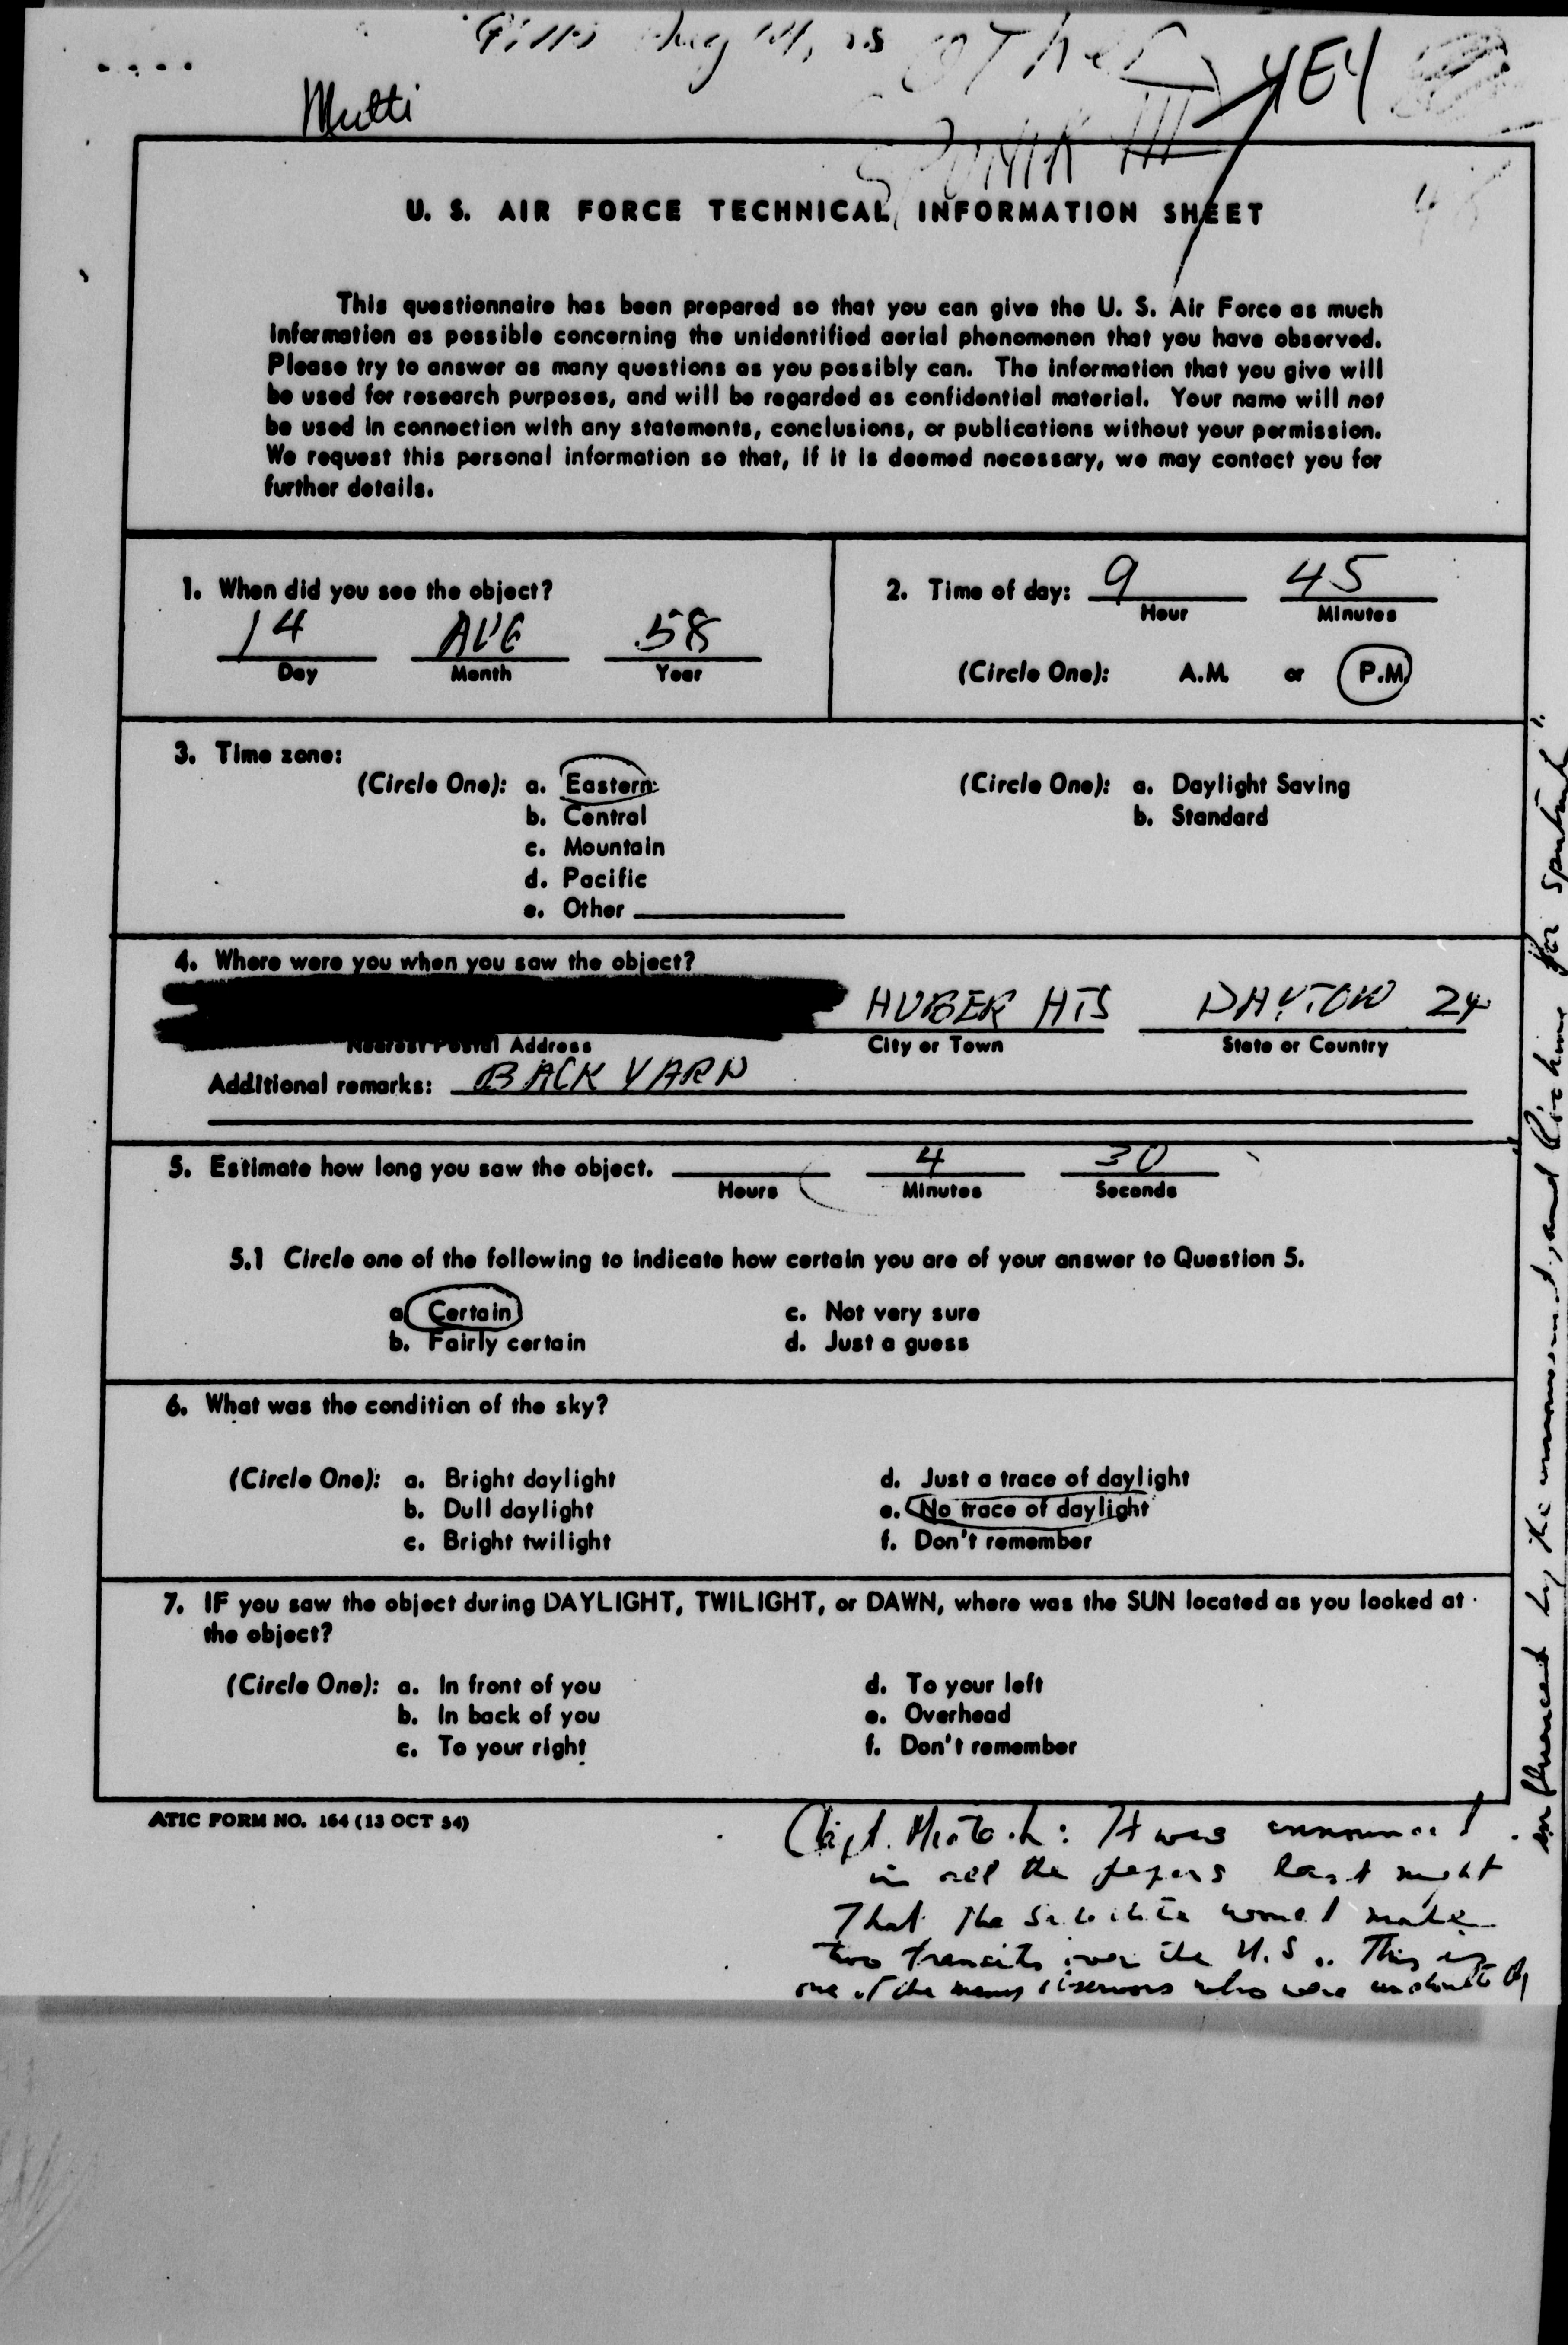 Aug 14, 58 OTher
YEY
Multi
SPUTNIK III
U. S. AIR FORCE TECHNICAL INFORMATION SHEET
This questionnaire has been prepared so that you can give the U. S. Air Force as much
information as possible concerning the unidentified aerial phenomenon that you have observed.
Please try to answer as many questions as you possibly can. The information that you give will
be used for research purposes, and will be regarded as confidential material. Your name will not
be used in connection with any statements, conclusions, or publications without your permission.
We request this personal information so that, if it is deemed necessary, we may contact you for
further details.
1. When did you see the object?
14 AUG 58
Day Month Year
2. Time of day: 9 45
Hour Minutes
(Circle One): A.M. or P.M.
3. Time zone:
(Circle One): a. Eastern
b. Central
c. Mountain
d. Pacific
e. Other
(Circle One): a. Daylight Saving
b. Standard
4. Where were you when you saw the object?
HUBER HTS DAYTON 24
Nearest Postal Address City or Town State or Country
Additional remarks: BACK YARD
5. Estimate how long you saw the object. 4 30
Hours Minutes Seconds
5.1 Circle one of the following to indicate how certain you are of your answer to Question 5.
a. Certain c. Not very sure
b. Fairly certain d. Just a guess
6. What was the condition of the sky?
(Circle One): a. Bright daylight d. Just a trace of daylight
b. Dull daylight e. No trace of daylight
c. Bright twilight f. Don't remember
7. IF you saw the object during DAYLIGHT, TWILIGHT, or DAWN, where was the SUN located as you looked at
the object?
(Circle One): a. In front of you d. To your left
b. In back of you e. Overhead
c. To your right f. Don't remember
ATIC FORM NO. 164 (13 OCT 54)
Capt. : It was announced
in all the papers last night
That the Satellite would make
two transits over the U.S.. This is
one of the many observers who were undoubtedly
influenced by the announcement, and for sputnik".